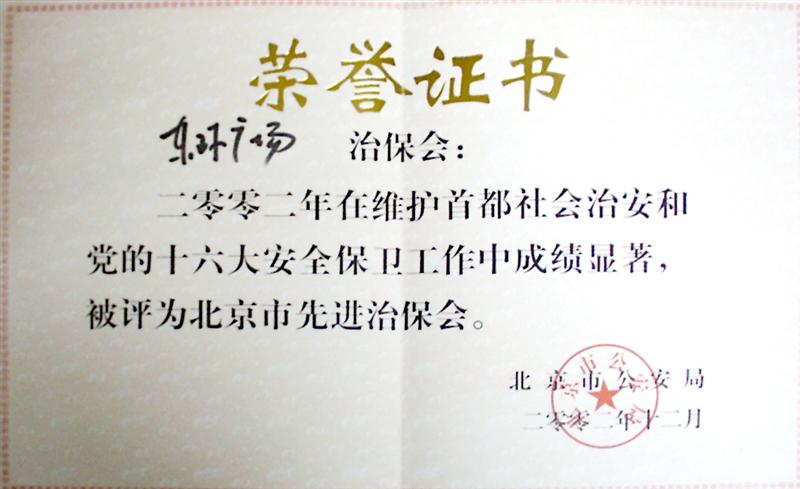 荣誉证书
东环广场 治保会:
二零零二年在维护首都社会治安和
党的十六大安全保卫工作中成绩显著,
被评为北京市先进治保会。
北京市公安局
二零零二年十二月
北京市公安局